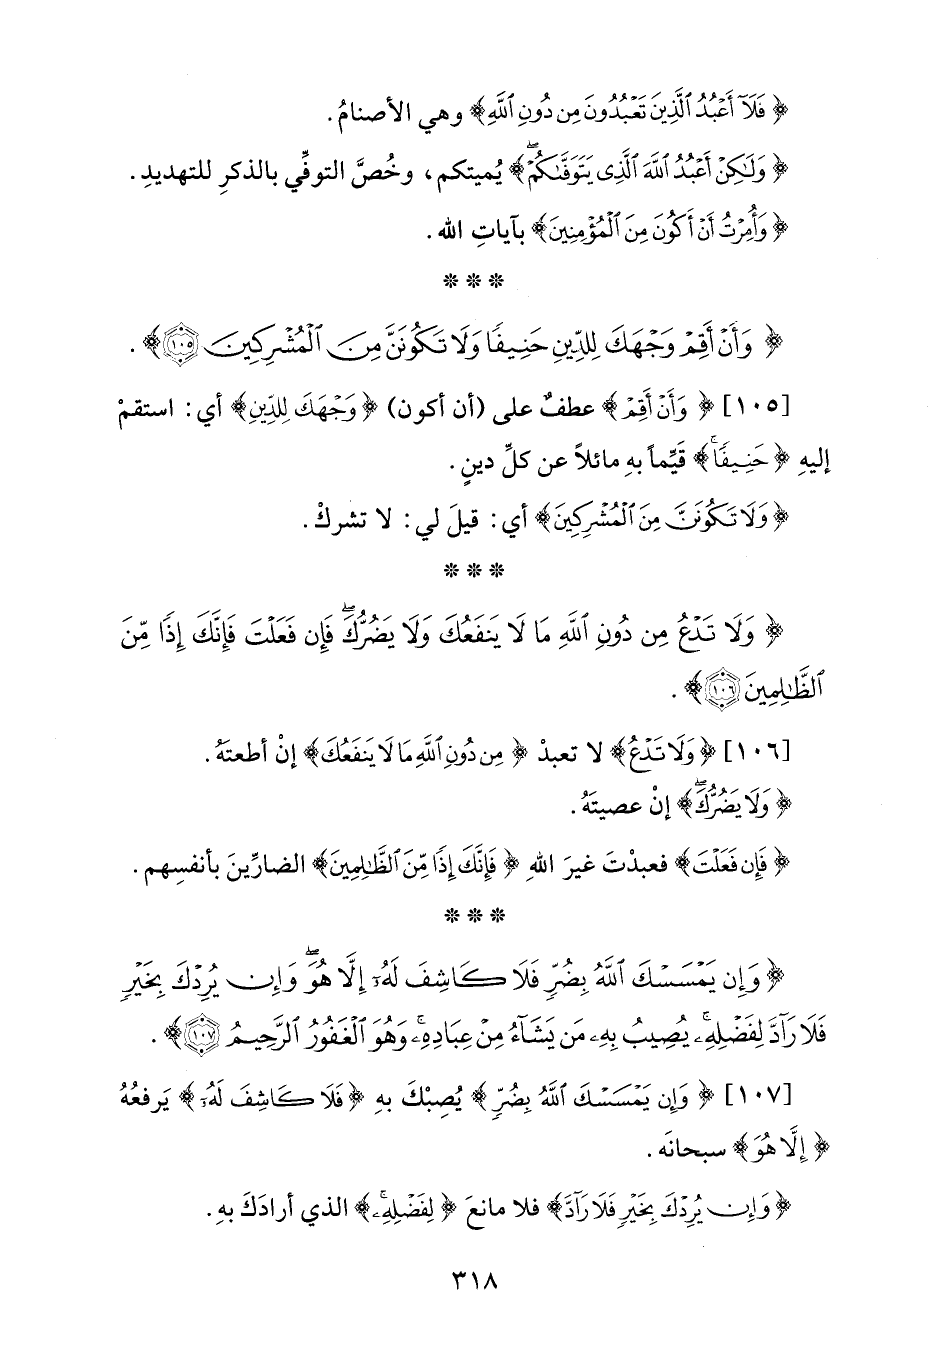 ﴿ فَلَآ أَعْبُدُ ٱلَّذِينَ تَعْبُدُونَ مِن دُونِ ٱللَّهِ﴾ وهي الأصنامُ.
﴿ وَلَٰكِنْ أَعْبُدُ ٱللَّهَ ٱلَّذِى يَتَوَفَّىٰكُمْۖ﴾ يُميتكم، وخُصَّ التوفِّي بالذكرِ للتهديدِ.
﴿ وَأُمِرْتُ أَنْ أَكُونَ مِنَ ٱلْمُؤْمِنِينَ﴾ بآياتِ الله.
* * *
﴿ وَأَنْ أَقِمْ وَجْهَكَ لِلدِّينِ حَنِيفًا وَلَا تَكُونَنَّ مِنَ ٱلْمُشْرِكِينَ ١٠٥﴾.
[١٠٥] ﴿ وَأَنْ أَقِمْ﴾ عطفٌ على (أن أكون) ﴿ وَجْهَكَ لِلدِّينِ﴾ أي: استقمْ
إليهِ ﴿ حَنِيفًاۚ﴾ قَيِّماً بهِ مائلاً عن كلِّ دينٍ.
﴿ وَلَا تَكُونَنَّ مِنَ ٱلْمُشْرِكِينَ﴾ أي: قيلَ لي: لا تشركْ.
* * *
﴿ وَلَا تَدْعُ مِن دُونِ ٱللَّهِ مَا لَا يَنفَعُكَ وَلَا يَضُرُّكَۖ فَإِن فَعَلْتَ فَإِنَّكَ إِذًا مِّنَ
ٱلظَّٰلِمِينَ ١٠٦﴾.
[١٠٦] ﴿ وَلَا تَدْعُ﴾ لا تعبدْ ﴿ مِن دُونِ ٱللَّهِ مَا لَا يَنفَعُكَ﴾ إنْ أطعتَهُ.
﴿ وَلَا يَضُرُّكَۖ﴾ إنْ عصيتَهُ.
﴿ فَإِن فَعَلْتَ﴾ فعبدْتَ غيرَ اللهِ ﴿ فَإِنَّكَ إِذًا مِّنَ ٱلظَّٰلِمِينَ﴾ الضارِّينَ بأنفسِهم.
* * *
﴿ وَإِن يَمْسَسْكَ ٱللَّهُ بِضُرٍّ فَلَا كَاشِفَ لَهُۥٓ إِلَّا هُوَۖ وَإِن يُرِدْكَ بِخَيْرٍ
فَلَا رَآدَّ لِفَضْلِهِۦۚ يُصِيبُ بِهِۦ مَن يَشَآءُ مِنْ عِبَادِهِۦۚ وَهُوَ ٱلْغَفُورُ ٱلرَّحِيمُ ١٠٧﴾.
[١٠٧] ﴿ وَإِن يَمْسَسْكَ ٱللَّهُ بِضُرٍّ﴾ يُصِبْكَ بهِ ﴿ فَلَا كَاشِفَ لَهُۥٓ﴾ يَرفعُهُ
﴿ إِلَّا هُوَ﴾ سبحانَه.
﴿ وَإِن يُرِدْكَ بِخَيْرٍ فَلَا رَآدَّ﴾ فلا مانعَ ﴿ لِفَضْلِهِۦۚ﴾ الذي أرادَكَ بهِ.
٣١٨